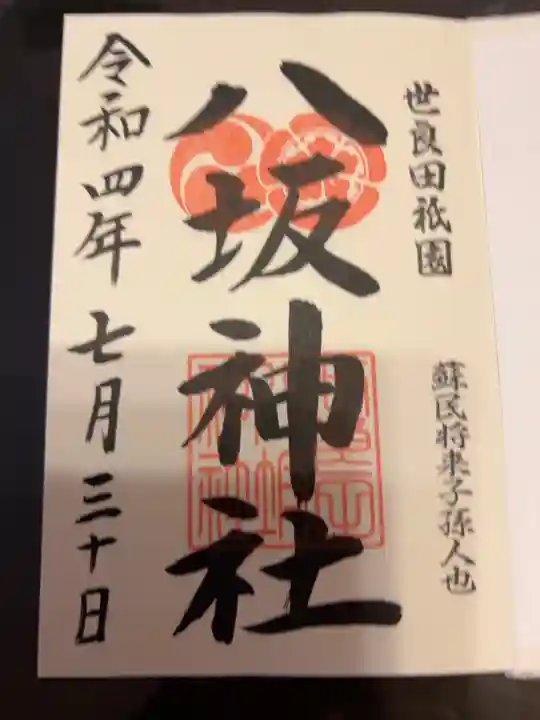 世良田祇園
蘇民将来子孫人也
八坂神社
令和四年七月三十日